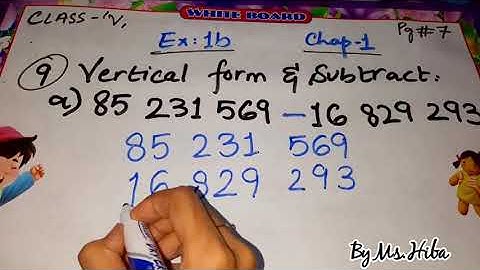 WHITE BOARD
CLASS-IV,
Pg#7
Ex:1b Chap-1
9 Vertical form & Subtract.
a) 85 231 569 – 16 829 293
85 231 569
16 829 293
By Ms.Hiba